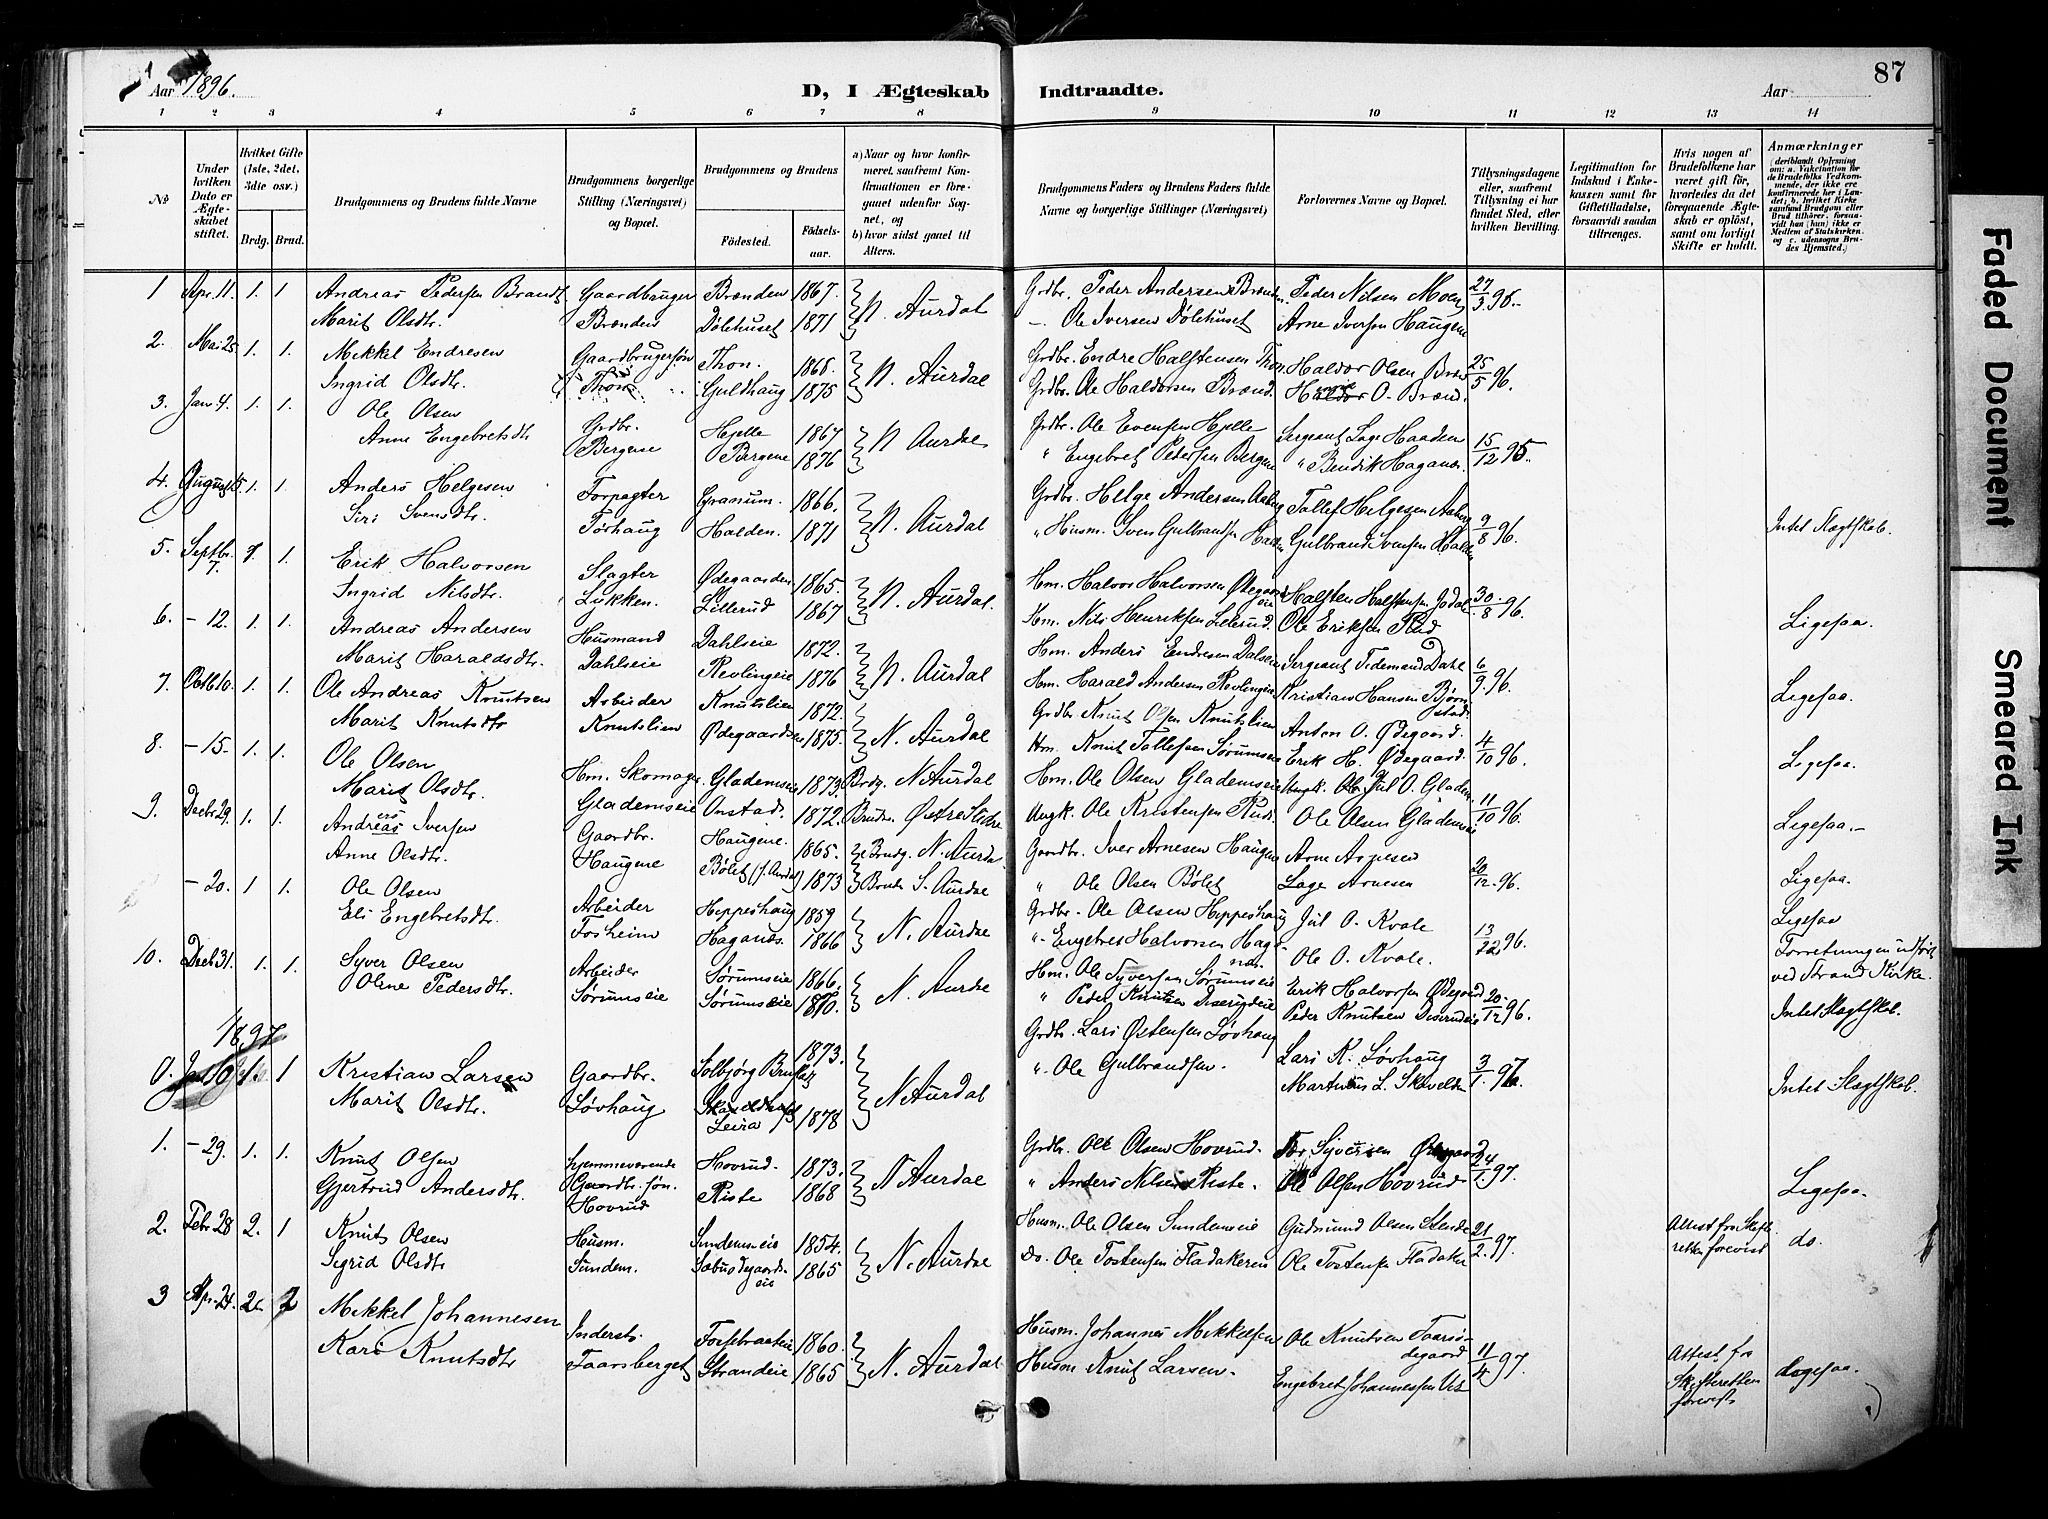 Aar 1896.
D, I Ægteskab Indtraadte.
Aar
87
1 2 3 4 5 6 7 8 9 10 11 12 13 14
№
Under hvilken Dato er Ægteskabet stiftet.
Hvilket Gifte (1ste, 2det, 3die osv.)
Brdg. Brud.
Brudgommens og Brudens fulde Navne
Brudgommens borgerlige Stilling (Næringsvei) og Bopæl.
Brudgommens og Brudens
Fødested. Fødselsaar.
a) Naar og hvor konfirmeret, saafremt Konfirmationen er foregaaet udenfor Sognet, og b) hvor sidst gaaet til Alters.
Brudgommens Faders og Brudens Faders fulde Navne og borgerlige Stillinger (Næringsvei)
Forlovernes Navne og Bopæl.
Tillysningsdagene eller, saafremt Tillysning ei har fundet Sted, efter hvilken Bevilling.
Legitimation for Indskud i Enkekassen samt for Giftetilladelse, forsaavidt saadan tiltrænges.
Hvis nogen af Brudefolkene har været gift før, hvorledes da det foregaaende Ægteskab er opløst, samt om lovligt Skifte er holdt.
Anmærkninger
1 Apr. 11. 1. 1 Andreas Pedersen Brandt Gaardbruger Brænden 1867. N. Aurdal Grdbr. Peder Andersen Brænden. Peder Nilsen Moen 27/3 96.
Marit Olsdtr. Brænden Dölehuset 1871 — Ole Iversen Dölehuset Arne Iversen Haugene
2. Mai 25 1. 1. Mikkel Endresen Gaardbrugersøn Thon. 1868. N. Aurdal Grdbr. Endre Halstensen Thon Haldor Olsen Brænd 25/5 96.
Ingrid Olsdtr. Thon Guldhaug 1875 Grdbr. Ole Haldorsen Brænd. O. Brænd.
3. Jan 4. 1. 1. Ole Olsen Grdbr. Hjelle 1867 N. Aurdal Grdbr. Ole Evensen Hjelle Sergeant Lage Haaden 15/12 95.
Anne Engebretsdtr Bergene Bergene 1876 " Engebret Pedersen Bergene " Bendik Haganæs.
4. August 15. 1. 1 Anders Helgesen Forpagter Granum. 1866. N. Aurdal Grdbr. Helge Andersen Aaberg Tollef Helgesen Aaberg 9/8 96. Intet Slægtskab.
Siri Svensdtr. Torhaug Halden. 1871 " Husm. Sven Gulbrandsen Halden Gulbrand Svensen Halden
5. Septbr. 7. 1. Erik Halvorsen Slagter Ødegaarden 1865. N. Aurdal. Hm. Halvor Halvorsen Ødegaardseie Halsten Halstensen Jodal 30/8 96. Ligesaa.
Ingrid Nilsdtr. Lykken. Lillerud 1867 Hm. Nils Henriksen Lillerud. Ole Eriksen Rud
6. – 12. 1. 1. Andreas Andersen Husmand Dahlseie 1872. N. Aurdal Hm. Anders Endresen Dalseie Sergeant Tidemand Dahl 6/9 96. Ligesaa.
Marit Haraldsdtr. Dahlseie Revlingeie 1876 Hm. Harald Andersen Revlingeie Kristian Hansen Bjørnstad.
7. Octb 10. 1. 1. Ole Andreas Knutsen Arbeider Knutslien 1872. N. Aurdal Grdbr Knut Olsen Knutslien Anton O. Ødegaard. 4/10 96. Ligesaa.
Marit Knutsdtr Knutslien Ødegaardseie 1875. Hm. Knut Tollefsen Sørumseie Erik H. Ødegaard.
8. – 15. 1. 1. Ole Olsen Hm. Skomager Glademseie 1873. Brdg. N. Aurdal Hm. Ole Olsen Glademseie Ungk. Jul O. Gladem 11/10 96. Ligesaa.
Marit Olsdtr. Glademseie Onstad. 1872. Brud. Østre Slidre Ungk. Ole Kristensen Rud. Ole Olsen Glademseie
9. Decbr 29. 1. 1. Andreas Iversen Gaardbr. Haugene. 1865. Brudg. N. Aurdal Gaardbr. Iver Arnesen Haugene Arne Arnesen 20/12 96. Ligesaa.
Anne Olsdtr. Haugene Bølet (S. Aurdal) 1873 Brud. S. Aurdal " Ole Olsen Bølet Lage Arnesen
– 20. 1 1. Ole Olsen Arbeider Heppeshaug 1859 N. Aurdal Grdbr. Ole Olsen Heppeshaug Jul O. Kvale 13/12 96. Ligesaa
Eli Engebretsdtr. Fosheim Haganæs. 1866 " Engebret Halvorsen Haganæs. Ole O. Kvale. Forretningen udført ved Strand Kirke.
10. Decb 31. 1. 1. Syver Olsen Arbeider Sørumseie 1866. N. Aurdal Hm. Ole Syversen Sørumseie Erik Halvorsen Ødegaard 20/12 96. Intet Slægtskab.
Olene Pedersdtr. Sørumseie Sørumseie 1870. " Peder Knutsen Diserudeie Peder Knutsen Diserudeie
1897
1. 1 Kristian Larsen Gaardbr. Solbjørg 1873. N. Aurdal Grdbr. Lars Østensen Løvhaug Lars K. Løvhaug 3/1 97. Intet Slægtskab.
Marit Olsdtr. Løvhaug Leira 1878 " Ole Gulbrandsen. L. Skavelden
1. – 29. 1. 1. Knut Olsen hjemmeværende Hovrud. 1873. N. Aurdal Grdbr. Ole Olsen Hovrud. Syversen 24/1 97. Ligesaa.
Gjertrud Andersdtr. Gaardbr. søn. Hovrud Riste 1868 " Anders Nilsen Riste. Ole Olsen Hovrud
2. Febr 28 2. 1 Knut Olsen Husm. Sundemseie 1854. N. Aurdal Husm. Ole Olsen Sundemseie Gudmund Olsen 21/2 97. Attest fra Skifteretten forevist do.
Sigrid Olsdtr Sundem. 1865 do. Ole Tostensen Fladakereie Ole Tostensen Fladaker
3 Apr. 24. 2. Mikkel Johannesen Inderst. 1860. N. Aurdal Husm. Johannes Mikkelsen Ole Knutsen 11/4 97. Attest fra Skifteretten forevist Ligesaa.
Kari Knutsdtr Faarsberget Strandeie 1865 Husm Knut Larsen. Engebret Johannessen
Faded Document
Smeared Ink